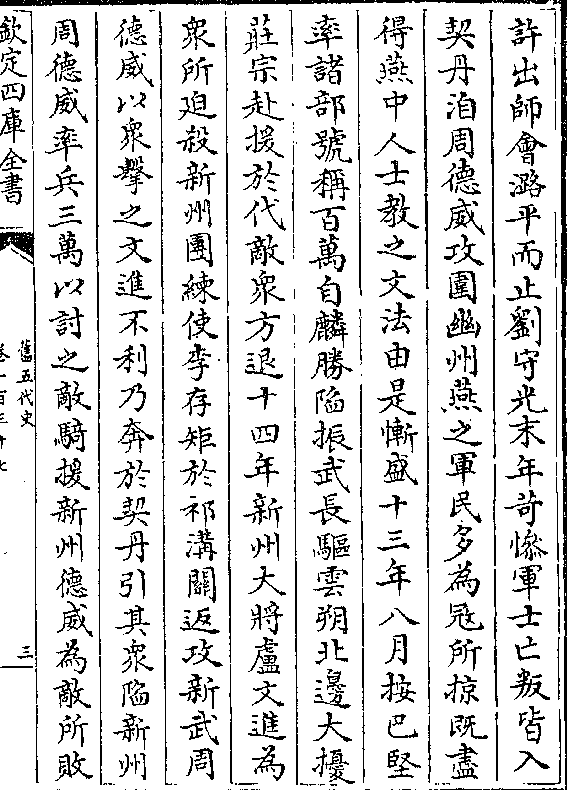 許出師會潞平而止劉守光末年苛慘軍士亡叛皆入
契丹洎周德威攻圍幽州燕之軍民多為冦所掠既盡
得燕中人士教之文法由是慚盛十三年八月按巴堅
率諸部號稱百萬自麟勝陷振武長驅雲朔北邊大擾
莊宗赴援於代敵衆方退十四年新州大將盧文進為
衆所迫殺新州團練使李存矩於祁溝關返攻新武周
德威以衆擊之文進不利乃奔於契丹引其衆陷新州
周德威率兵三萬以討之敵騎援新州德威為敵所敗
欽定四庫全書
舊五代史
卷一百三十七
三